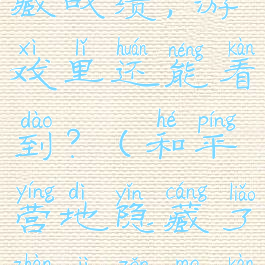 藏战绩，游
xì lǐ huán néng kàn
戏里还能看
dào hé píng
到？（和平
yíng dì yǐn cáng liǎo
营地隐藏了
zhàn jì zěn me kàn